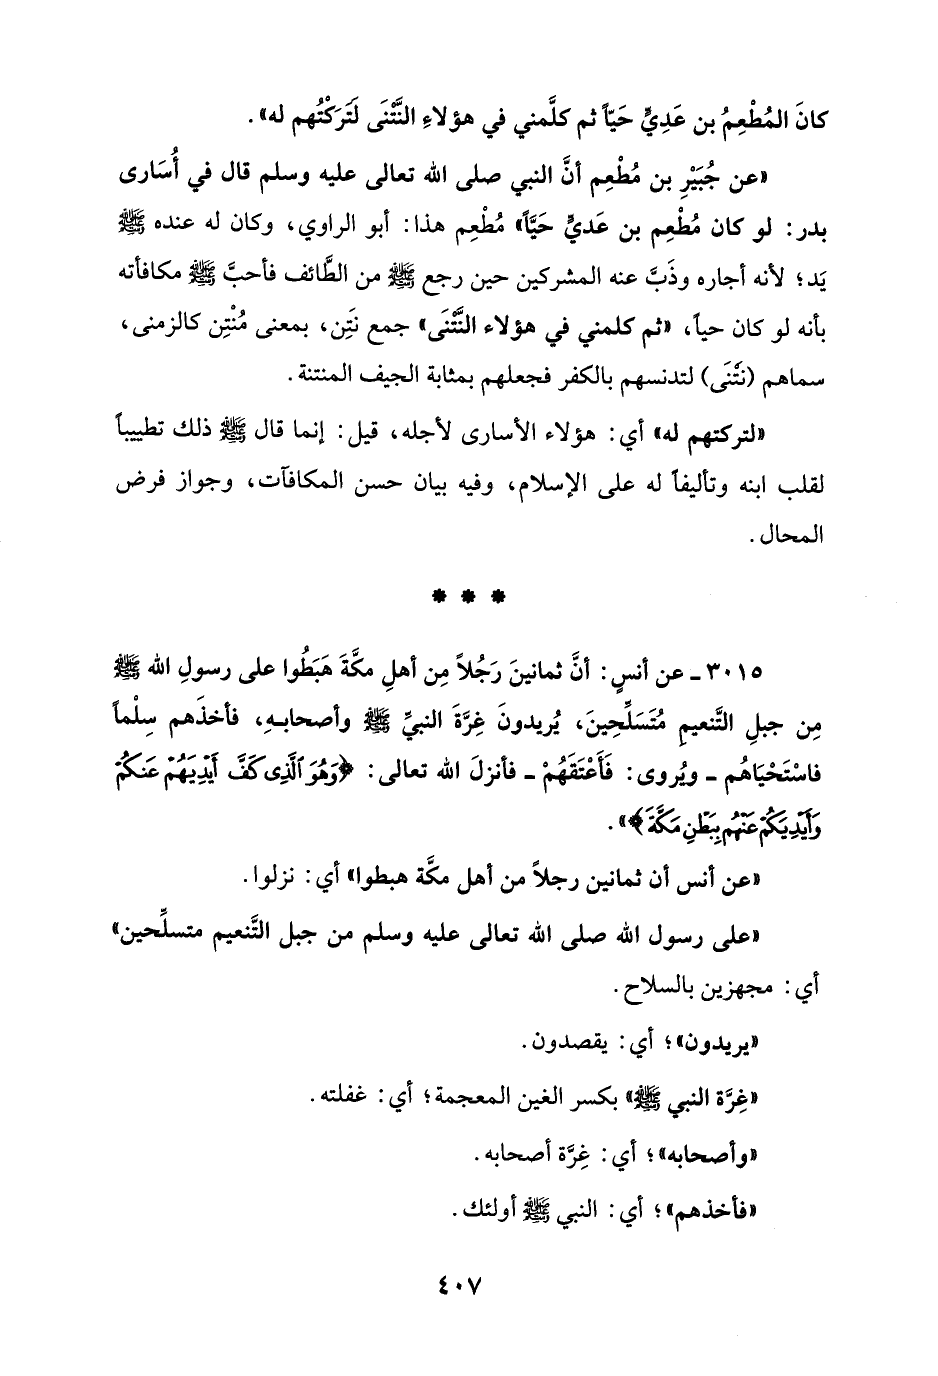 كانَ المُطْعِمُ بن عَدِيٍّ حَيّاً ثم كلَّمني في هؤلاءِ النَّتْنَى لَتَرَكْتُهم له».
«عن جُبَيْرِ بن مُطْعِم أنَّ النبي صلى الله تعالى عليه وسلم قال في أُسَارى
بدر: لو كان مُطْعِم بن عَديٍّ حَيَّاً» مُطْعِم هذا: أبو الراوي، وكان له عنده ﷺ
يَد؛ لأنه أجاره وذَبَّ عنه المشركين حين رجع ﷺ من الطَّائف فأحبَّ ﷺ مكافأته
بأنه لو كان حياً، «ثم كلمني في هؤلاء النَّتْنَى» جمع نَتِن، بمعنى مُنْتِن كالزمنى،
سماهم (نَتْنَى) لتدنسهم بالكفر فجعلهم بمثابة الجيف المنتنة.
«لتركتهم له» أي: هؤلاء الأسارى لأجله، قيل: إنما قال ﷺ ذلك تطييباً
لقلب ابنه وتأليفاً له على الإسلام، وفيه بيان حسن المكافآت، وجواز فرض
المحال.
* * *
٣٠١٥ ـ عن أنسٍ: أنَّ ثمانينَ رَجُلاً مِن أهلِ مكَّةَ هَبَطُوا على رسولِ الله ﷺ
مِن جبلِ التَّنعيمِ مُتَسَلِّحينَ، يُريدونَ غِرَّةَ النبيِّ ﷺ وأصحابِهِ، فأخذَهم سِلْماً
فاسْتَحْيَاهُم ـ ويُروى: فَأَعْتَقَهُمْ ـ فأنزلَ الله تعالى: ﴿وَهُوَ ٱلَّذِى كَفَّ أَيْدِيَهُمْ عَنكُمْ
وَأَيْدِيَكُمْ عَنْهُم بِبَطْنِ مَكَّةَ﴾».
«عن أنس أن ثمانين رجلاً من أهل مكَّة هبطوا» أي: نزلوا.
«على رسول الله صلى الله تعالى عليه وسلم من جبل التَّنعيم متسلِّحين»
أي: مجهزين بالسلاح.
«يريدون»؛ أي: يقصدون.
«غِرَّة النبي ﷺ» بكسر الغين المعجمة؛ أي: غفلته.
«وأصحابه»؛ أي: غِرَّة أصحابه.
«فأخذهم»؛ أي: النبي ﷺ أولئك.
٤٠٧